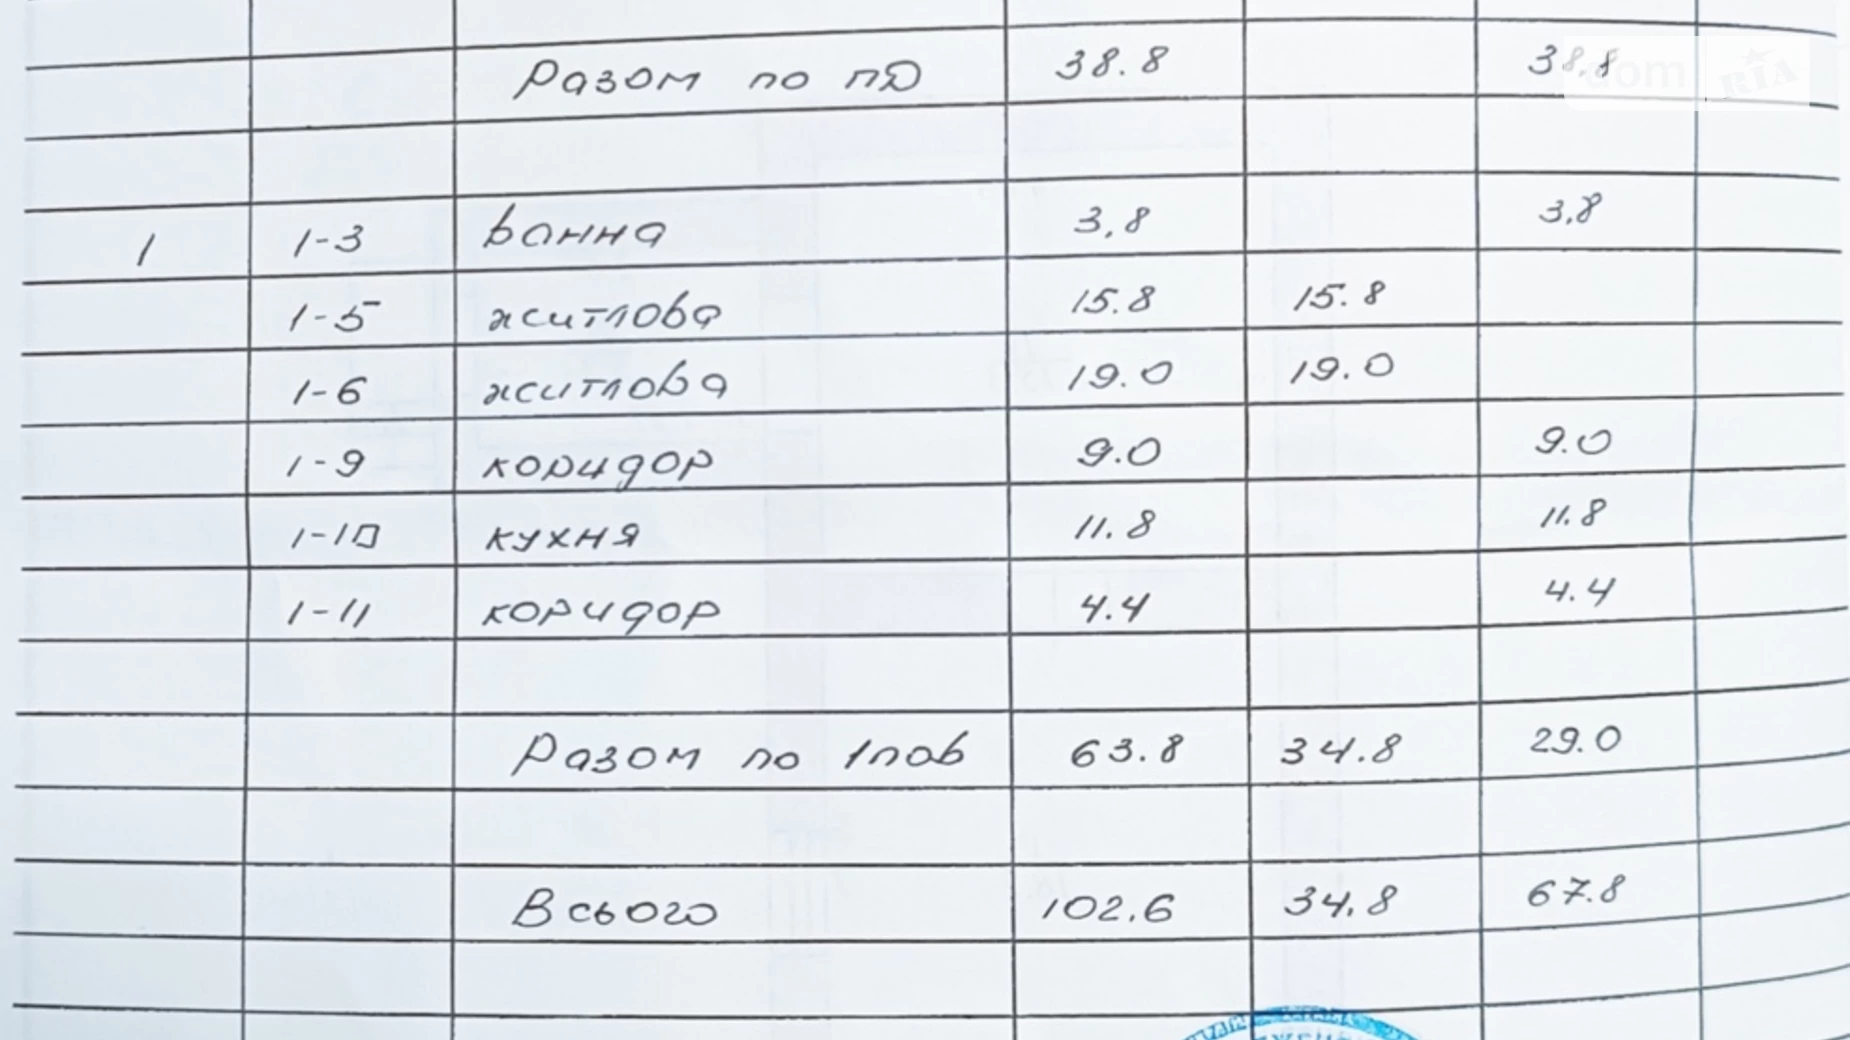 Разом по пД 38.8 38.8
dom RIA
1 1-3 ванна 3,8 3,8
1-5 житлова 15.8 15.8
1-6 житлова 19.0 19.0
1-9 коридор 9.0 9.0
1-10 кухня 11.8 11.8
1-11 коридор 4.4 4.4
Разом по 1пов 63.8 34.8 29.0
Всього 102.6 34.8 67.8